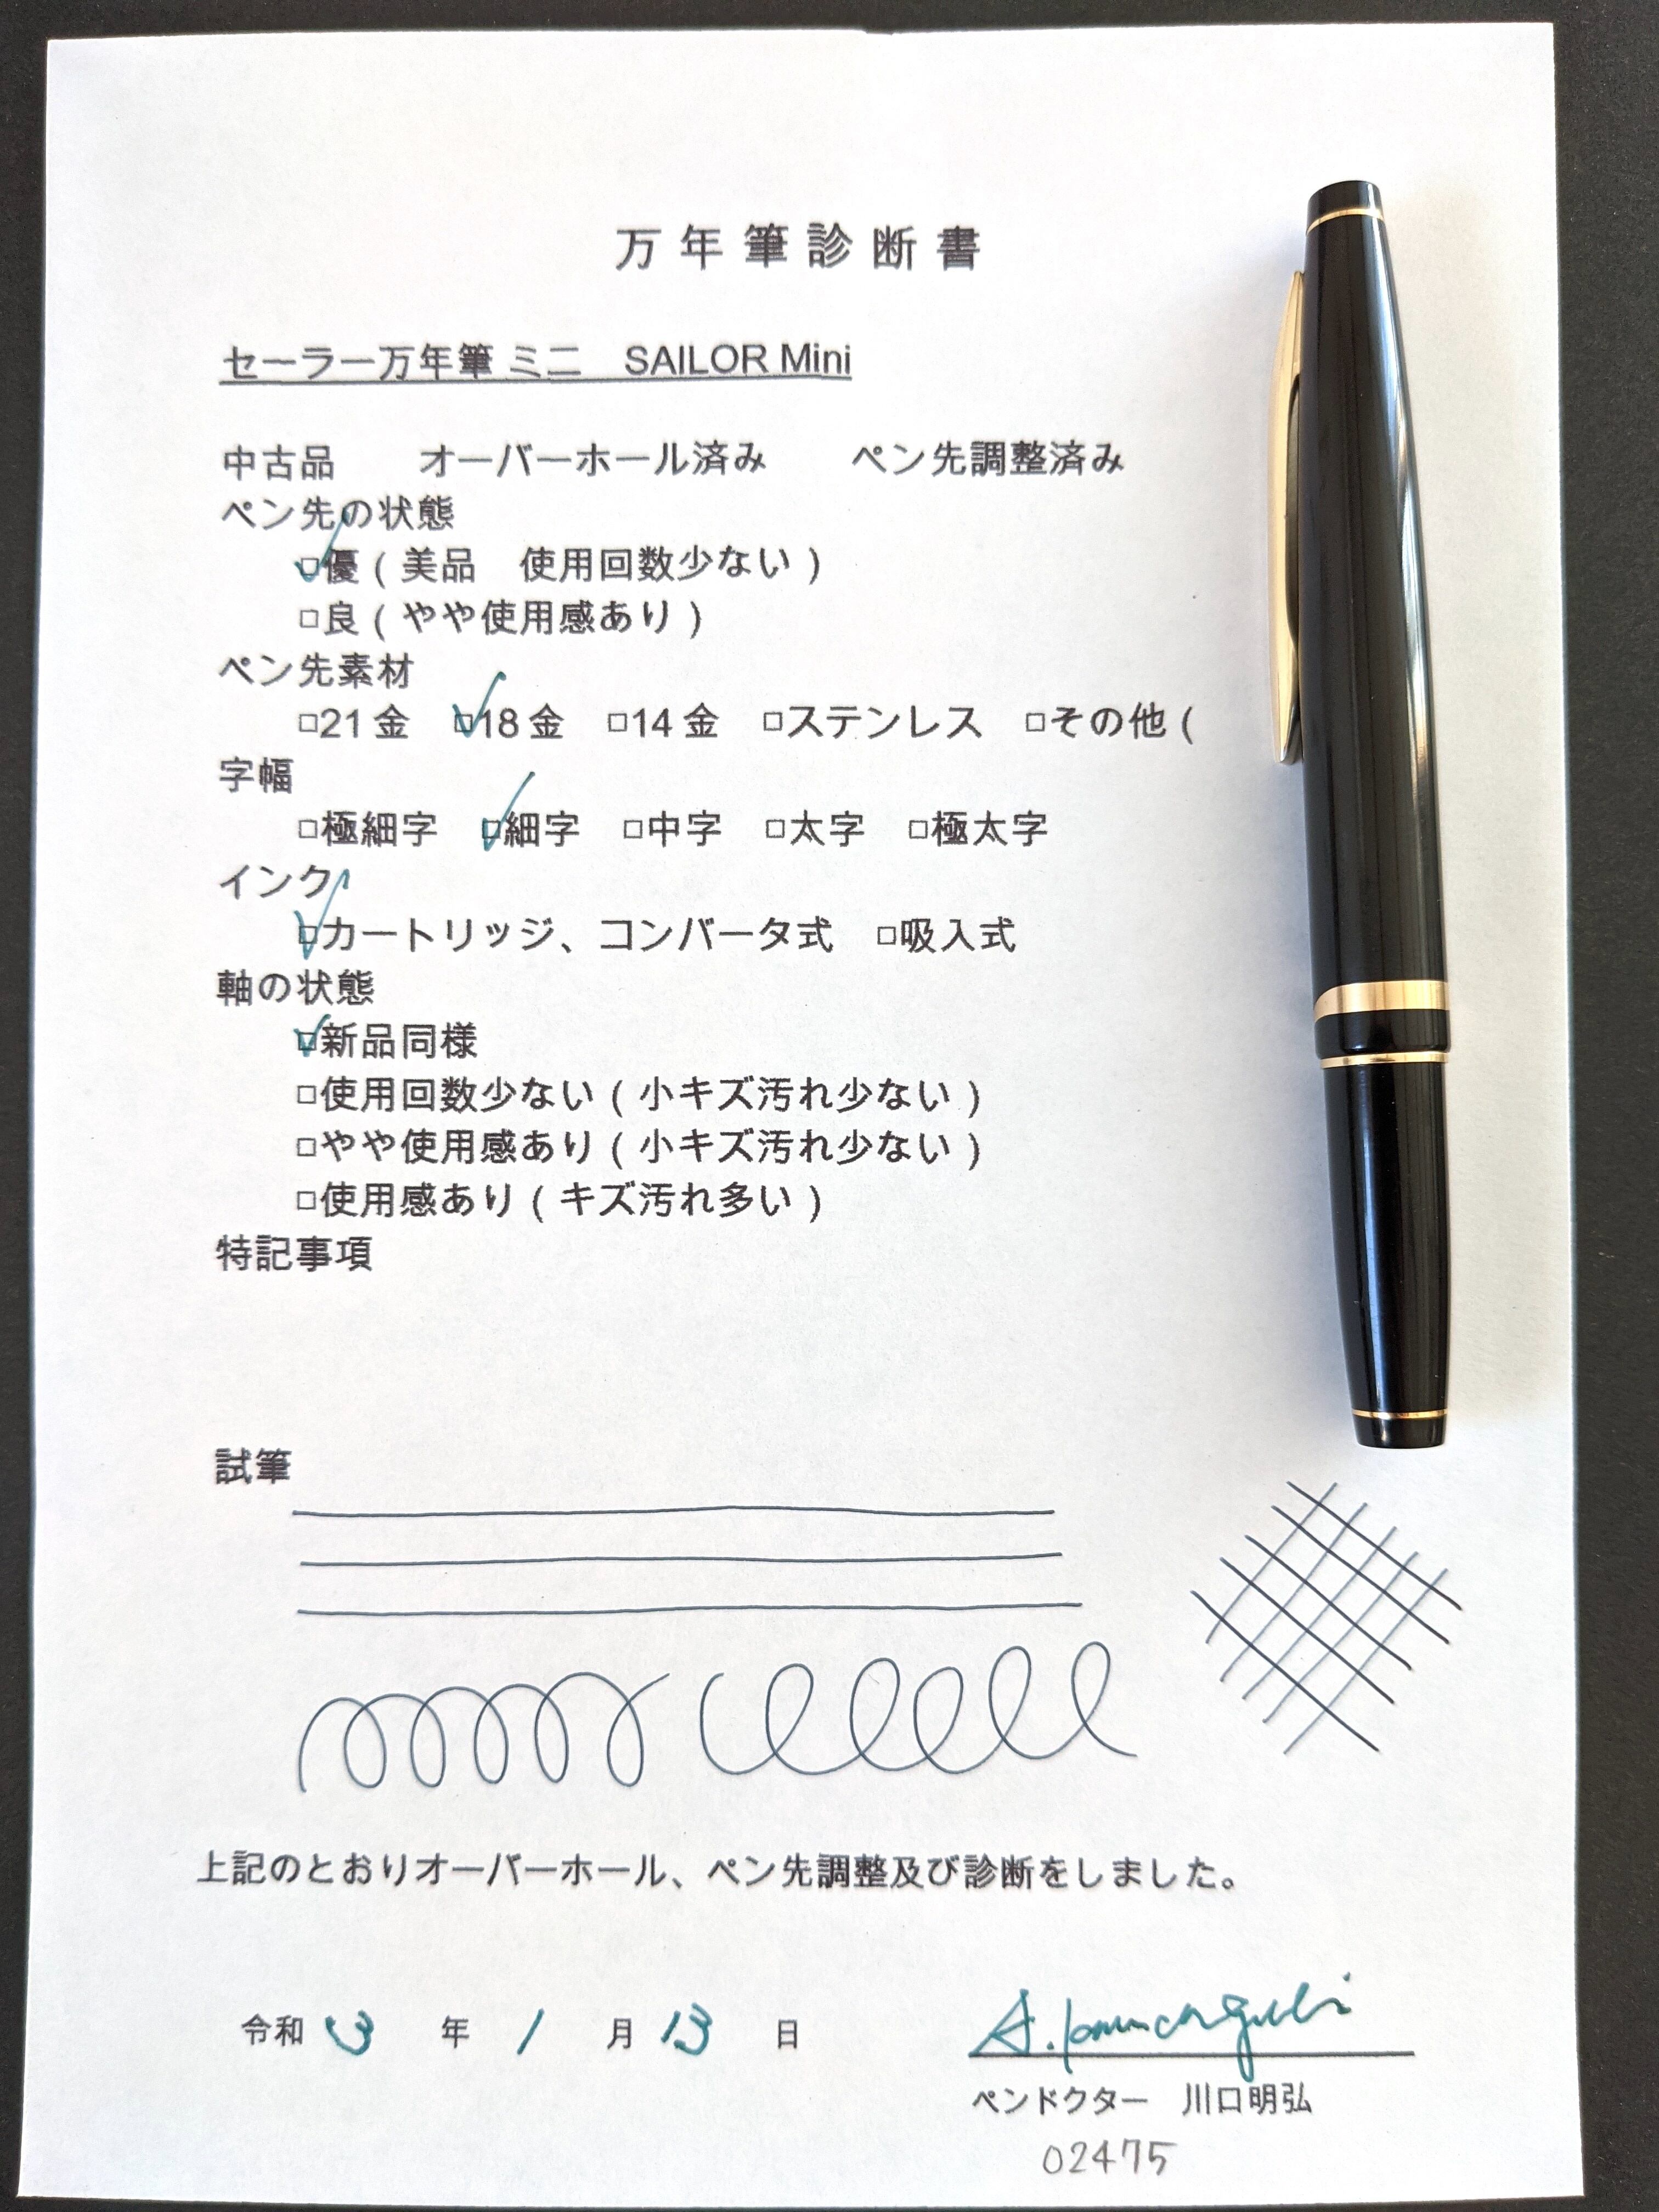 万年筆診断書
セーラー万年筆 ミニ　SAILOR Mini
中古品　　オーバーホール済み　　ペン先調整済み
ペン先の状態
☑優（美品　使用回数少ない）
□良（やや使用感あり）
ペン先素材
□21金　☑18金　□14金　□ステンレス　□その他（
字幅
□極細字　☑細字　□中字　□太字　□極太字
インク
☑カートリッジ、コンバータ式　□吸入式
軸の状態
☑新品同様
□使用回数少ない（小キズ汚れ少ない）
□やや使用感あり（小キズ汚れ少ない）
□使用感あり（キズ汚れ多い）
特記事項
試筆
上記のとおりオーバーホール、ペン先調整及び診断をしました。
令和 3 年 1 月 13 日
A. Kawaguchi
ペンドクター　川口明弘
02475